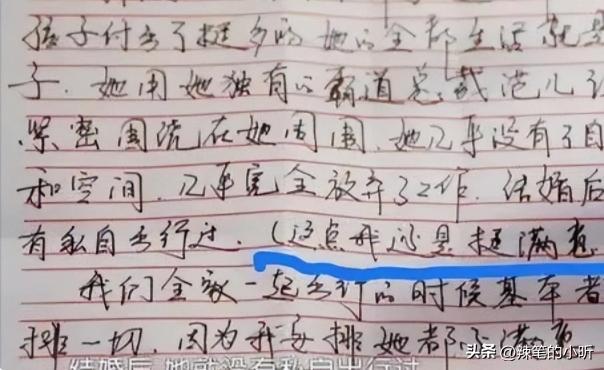 孩子付出了挺多的 她的全部生活就是
子.她用她独有的霸道总裁范儿让
紧密围绕在她周围.她几乎没有了自
和空间.几乎完全放弃了工作.结婚后
有私自出行过.(这点我还是挺满意
我们全家一起出行的时候基本都
排一切.因为我安排她都不满意
结婚后 她就没有私自出行过
头条 @辣笔的小昕